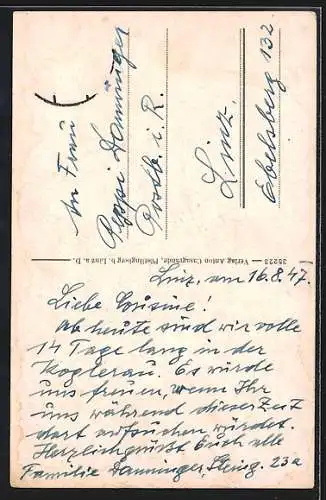 An Frau
Peppi Damminger
Postb. i. R.
Linz
Ebelsberg 132
35223 Verlag Anton Casagrande, Pöstlingberg b. Linz a. D.
Linz, am 16.8.47.
Liebe Cousine!
Ab heute sind wir volle
14 Tage lang in der
Koglerau. Es würde
uns freuen, wenn Ihr
uns während dieser Zeit
dort aufsuchen würdet.
Herzlich grüßt Euch alle
Familie Damminger, 23a